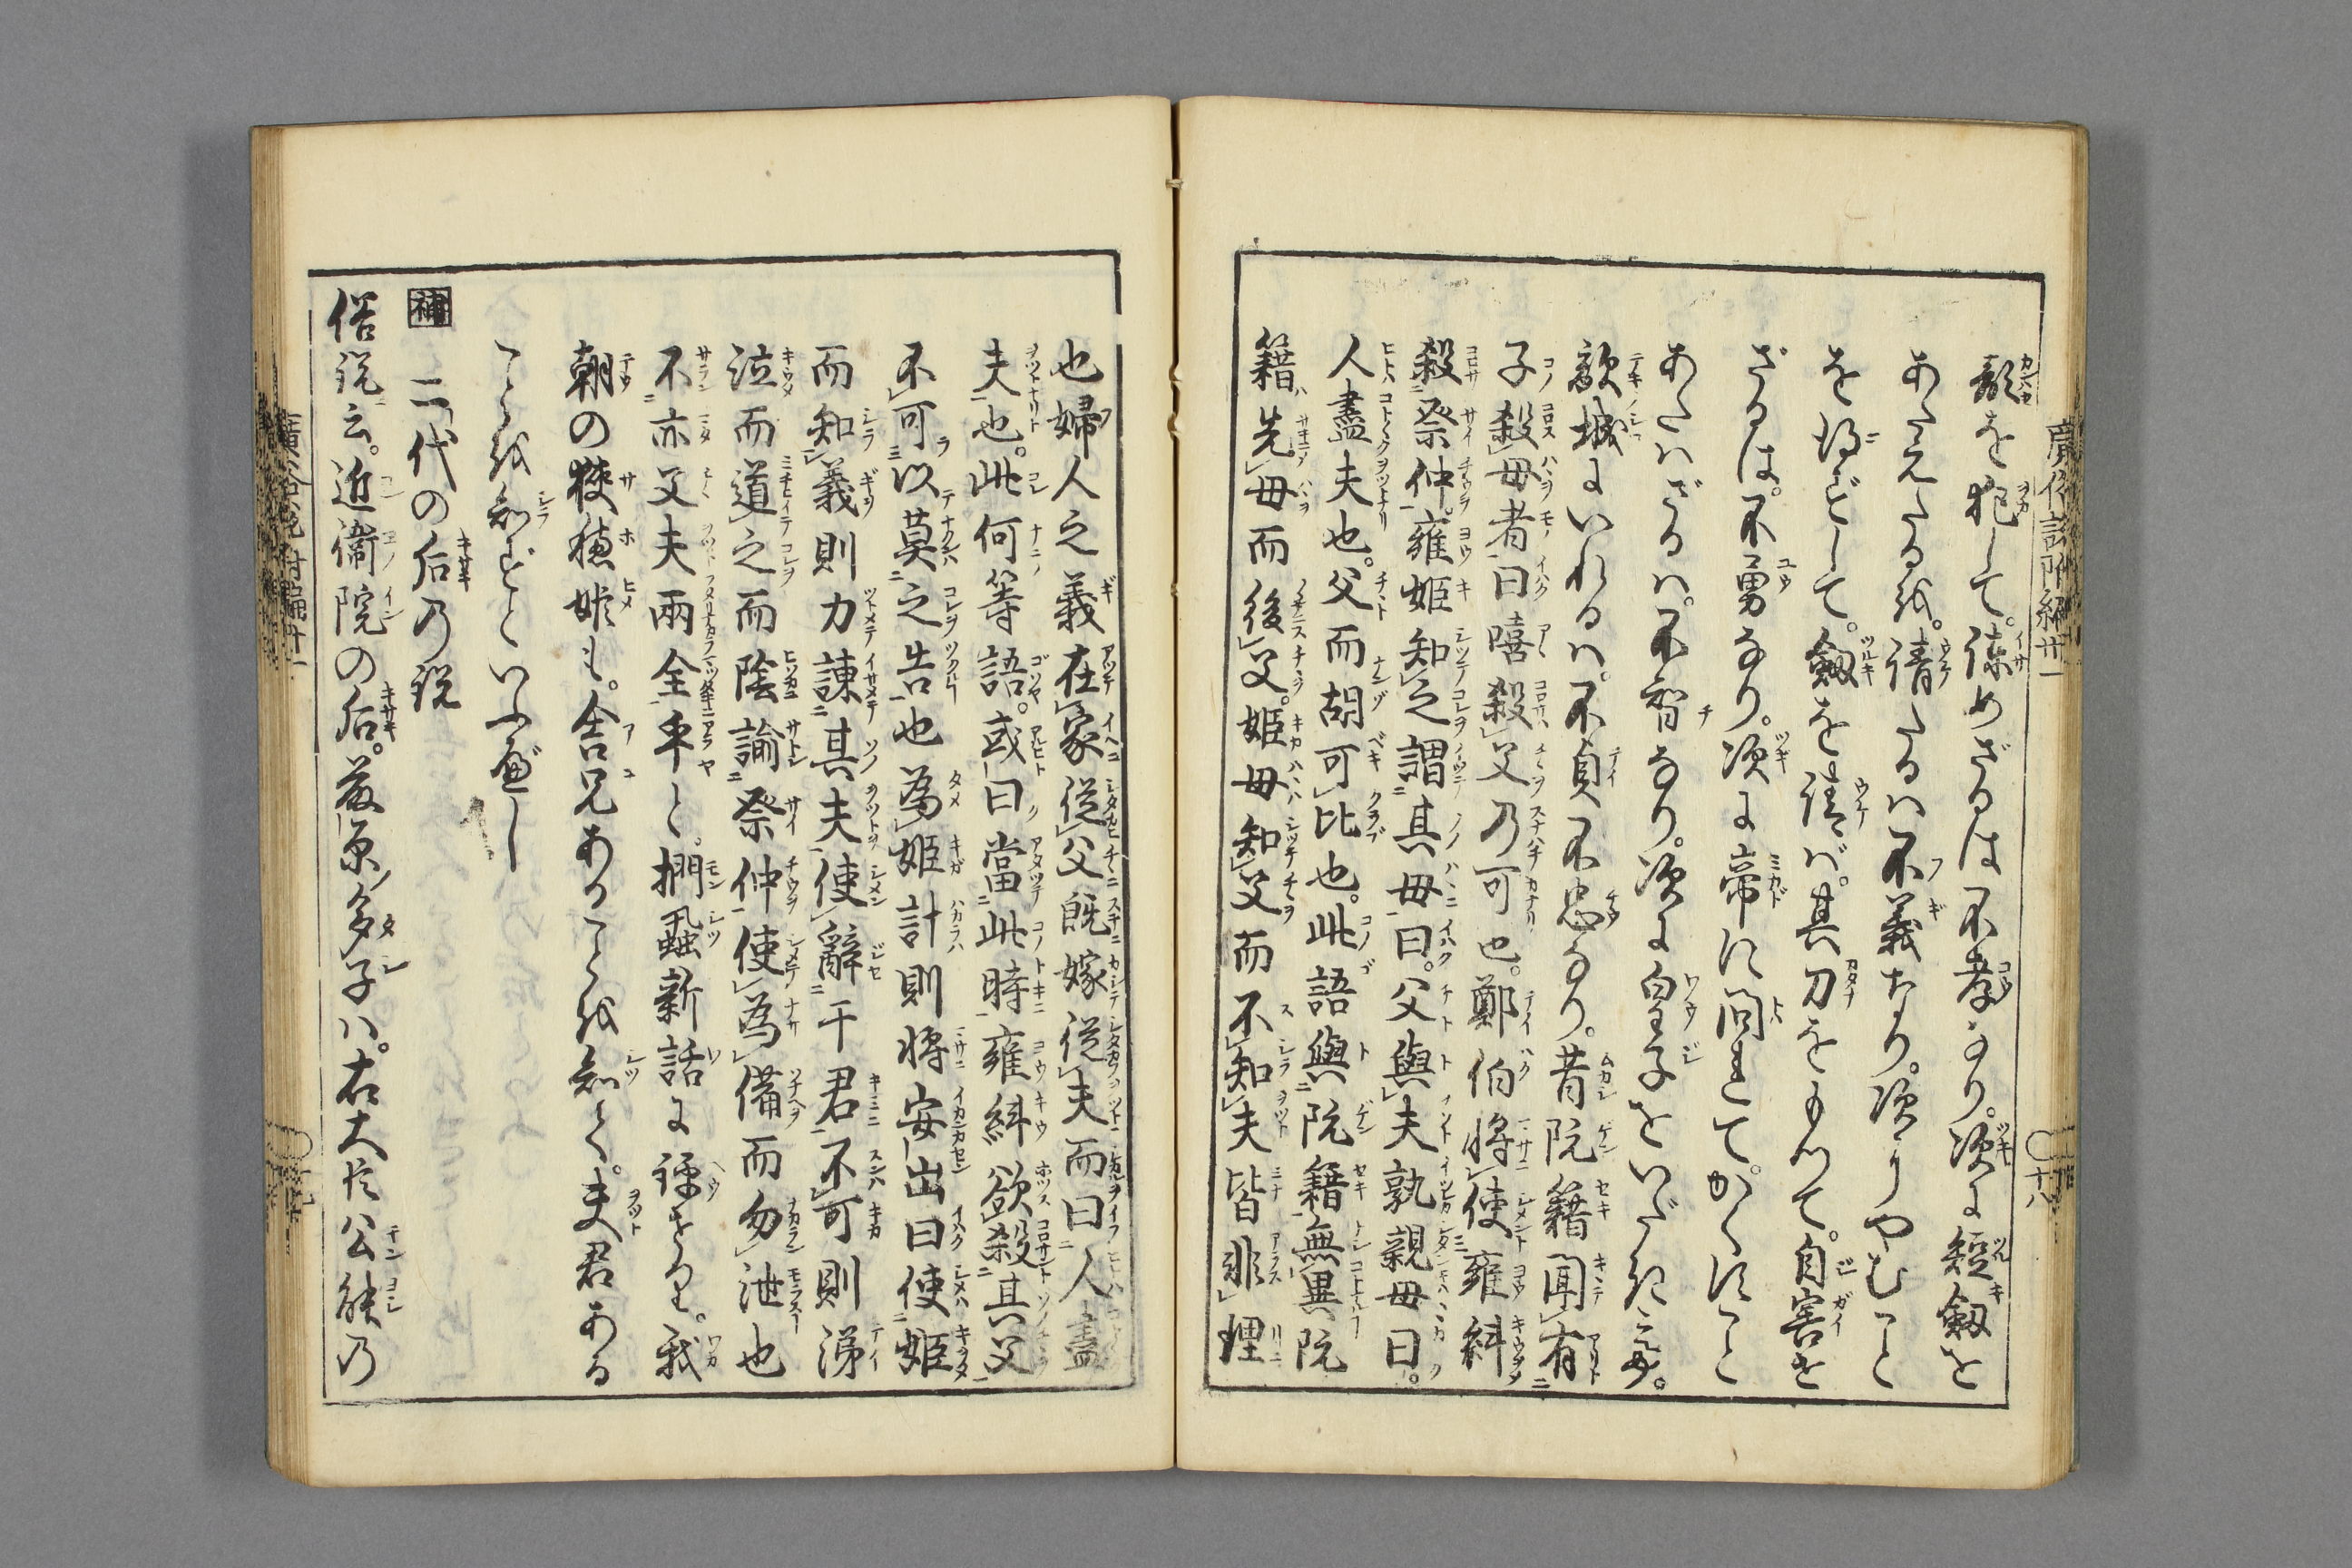 顔を犯して。諫めざるは不孝なり。次に短剱を
あたえたるを。請たるハ不義なり。次にやむこと
を得ずして。剱を請ば。其刀をもつて。自害せ
ざるは。不勇なり。次に帝に問れて。かくすこと
あたハざるハ。不智なり。次に皇子をいだきこみ。
敵城にいれるハ。不貞不忠なり。昔阮籍聞有
子殺母者曰嘻殺父乃可也。鄭伯將使雍糾
殺祭仲。雍姫知之謂其母曰。父與夫孰親母曰。
人盡夫也。父而胡可比也。此語與阮籍無異阮
籍先母而後父。姫母知父而不知夫皆非理
廣俗説附編廿一
十八
也婦人之義在家從父既嫁從夫而曰人盡
夫也。此何等語。或曰當此時雍糾欲殺其父
不可以莫之告也為姫計則將安出曰使姫
而知義則力諫其夫使辭于君不可則涕
泣而道之而陰諭祭仲使為備而勿泄也
不亦父夫兩全乎と。捫虱新話に譚せり。我
朝の狭穂姫も。舎兄あることを知て。夫君ある
ことを知ずといふべし
補 二代の后乃説
俗説云。近衞院の后。藤原多子ハ。右大臣公能乃
廣俗説附編廿一